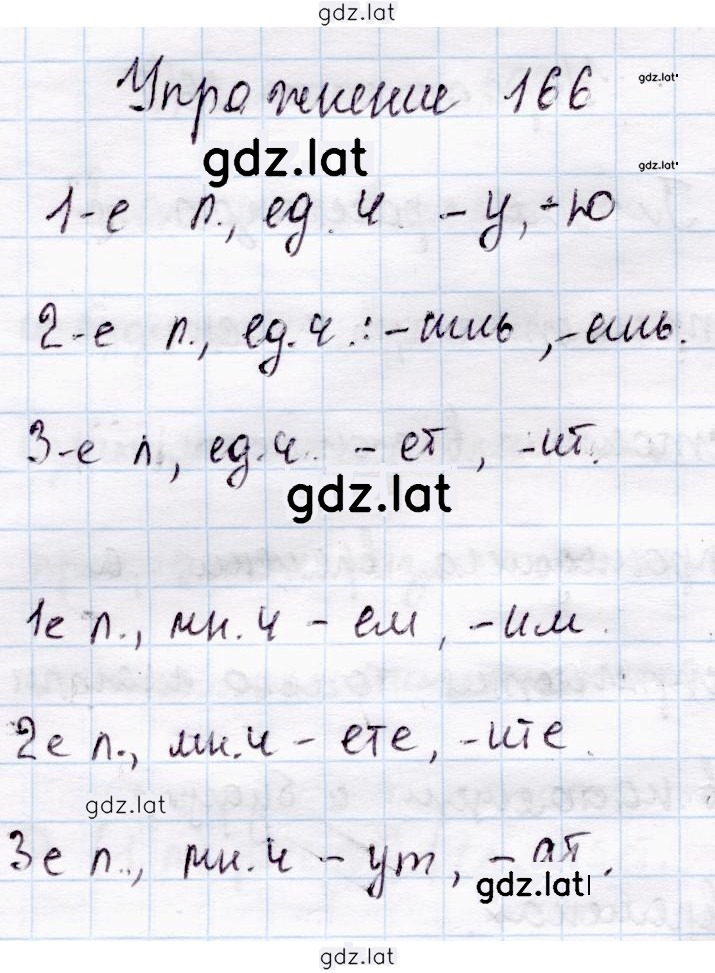 gdz.lat
Упражнение 166
gdz.lat
gdz.lat
gdz.lat
1-е л., ед. ч - у, -ю
2-е л., ед.ч.: -ишь, -ешь.
3-е л., ед.ч. - ет, -ит.
gdz.lat
1е л., мн.ч - ем, -им.
2е л., мн.ч - ете, -ите.
gdz.lat
3е л., мн.ч - ут, - ат.
gdz.lat
gdz.lat